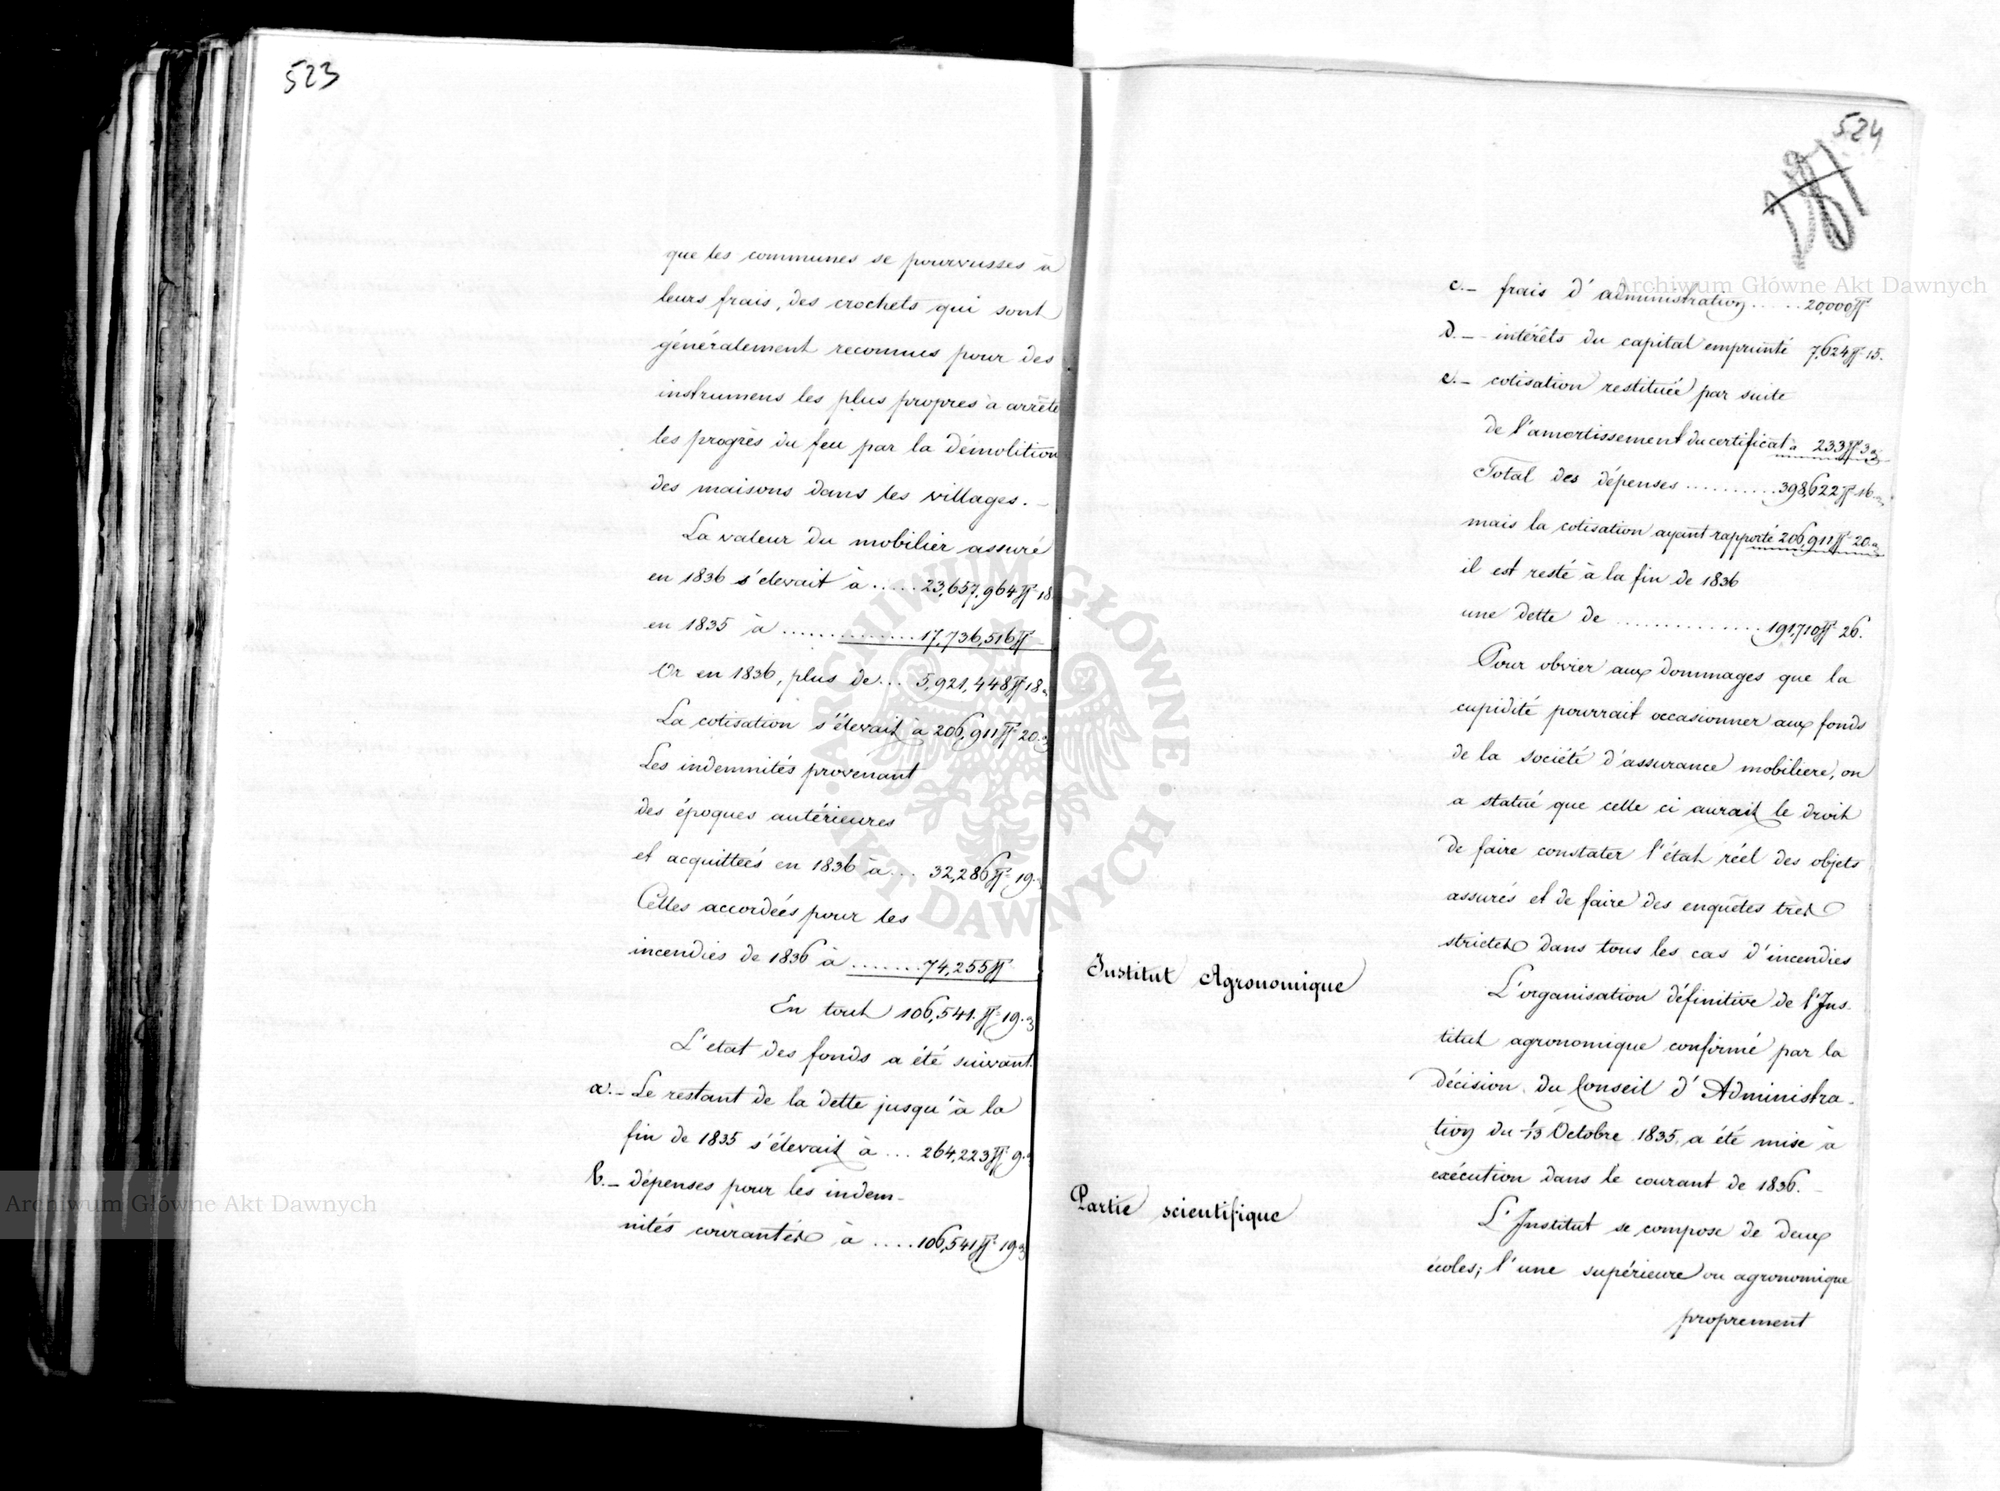 523
que les communes se pourvusses à
leurs frais, des crochets qui sont
généralement reconnus pour des
instrumens les plus propres à arrête
les progrès du feu par la démolition
des maisons dans les villages. –
La valeur du mobilier assuré
en 1836 s'elevait à ..... 23,657,964 fl 18
en 1835 à .............. 17,736,516 fl –
Or en 1836, plus de ... 5,921,448 fl 18
La cotisation s'élevait à 206,911 fl 20
Les indemnités provenant
des époques antérieures
et acquittées en 1836 à ... 32,286 fl 19
Celles accordées pour les
incendies de 1836 à ....... 74,255 fl
En tout 106,541. fl 19
L'etat des fonds a été suivant
a. – Le restant de la dette jusqu'à la
fin de 1835 s'élevait à ... 264,223 fl 9
b. – dépenses pour les indem–
nités courantes à .... 106,541 fl 19
524
c. – frais d'administration ..... 20,000 fl
d. – intérêts du capital emprunté 7,624 fl 15.
e. – cotisation restituée par suite
de l'amortissement du certificat à 233 fl 3
Total des dépenses .......... 398,622 fl 16
mais la cotisation ayant rapporté 206,911 fl 20
il est resté à la fin de 1836
une dette de .............. 191,710 fl 26.
Pour obvier aux dommages que la
cupidité pourrait occasionner aux fonds
de la société d'assurance mobiliere, on
a statué que celle ci aurait le droit
de faire constater l'état réel des objets
assurés et de faire des enquêtes très
strictes dans tous les cas d'incendies
Institut Agronomique
L'organisation définitive de l'Ins–
titut agronomique confirmé par la
décision du Conseil d'Administra–
tion du 1/13 Octobre 1835, a été mise à
exécution dans le courant de 1836. –
Partie scientifique
L'Institut se compose de deux
écoles; l'une supérieure ou agronomique
proprement
Archiwum Główne Akt Dawnych
Archiwum Główne Akt Dawnych
ARCHIWUM GŁÓWNE AKT DAWNYCH